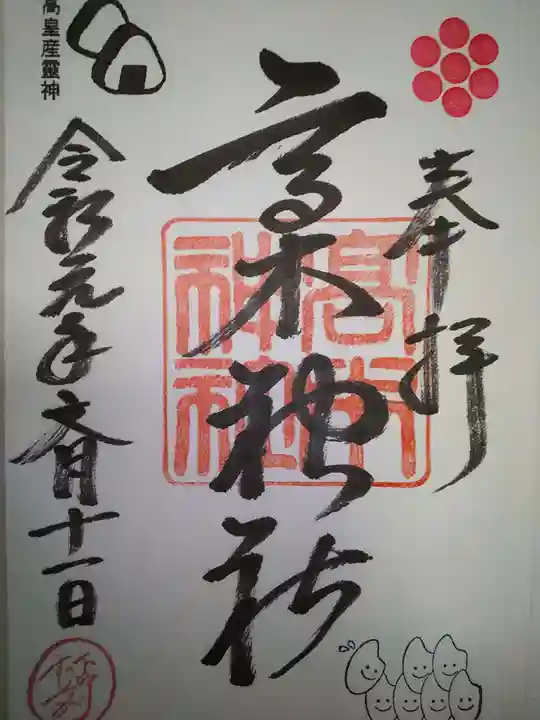 奉拝
髙木神社
髙木神社
高皇産靈神
令和元年六月十一日